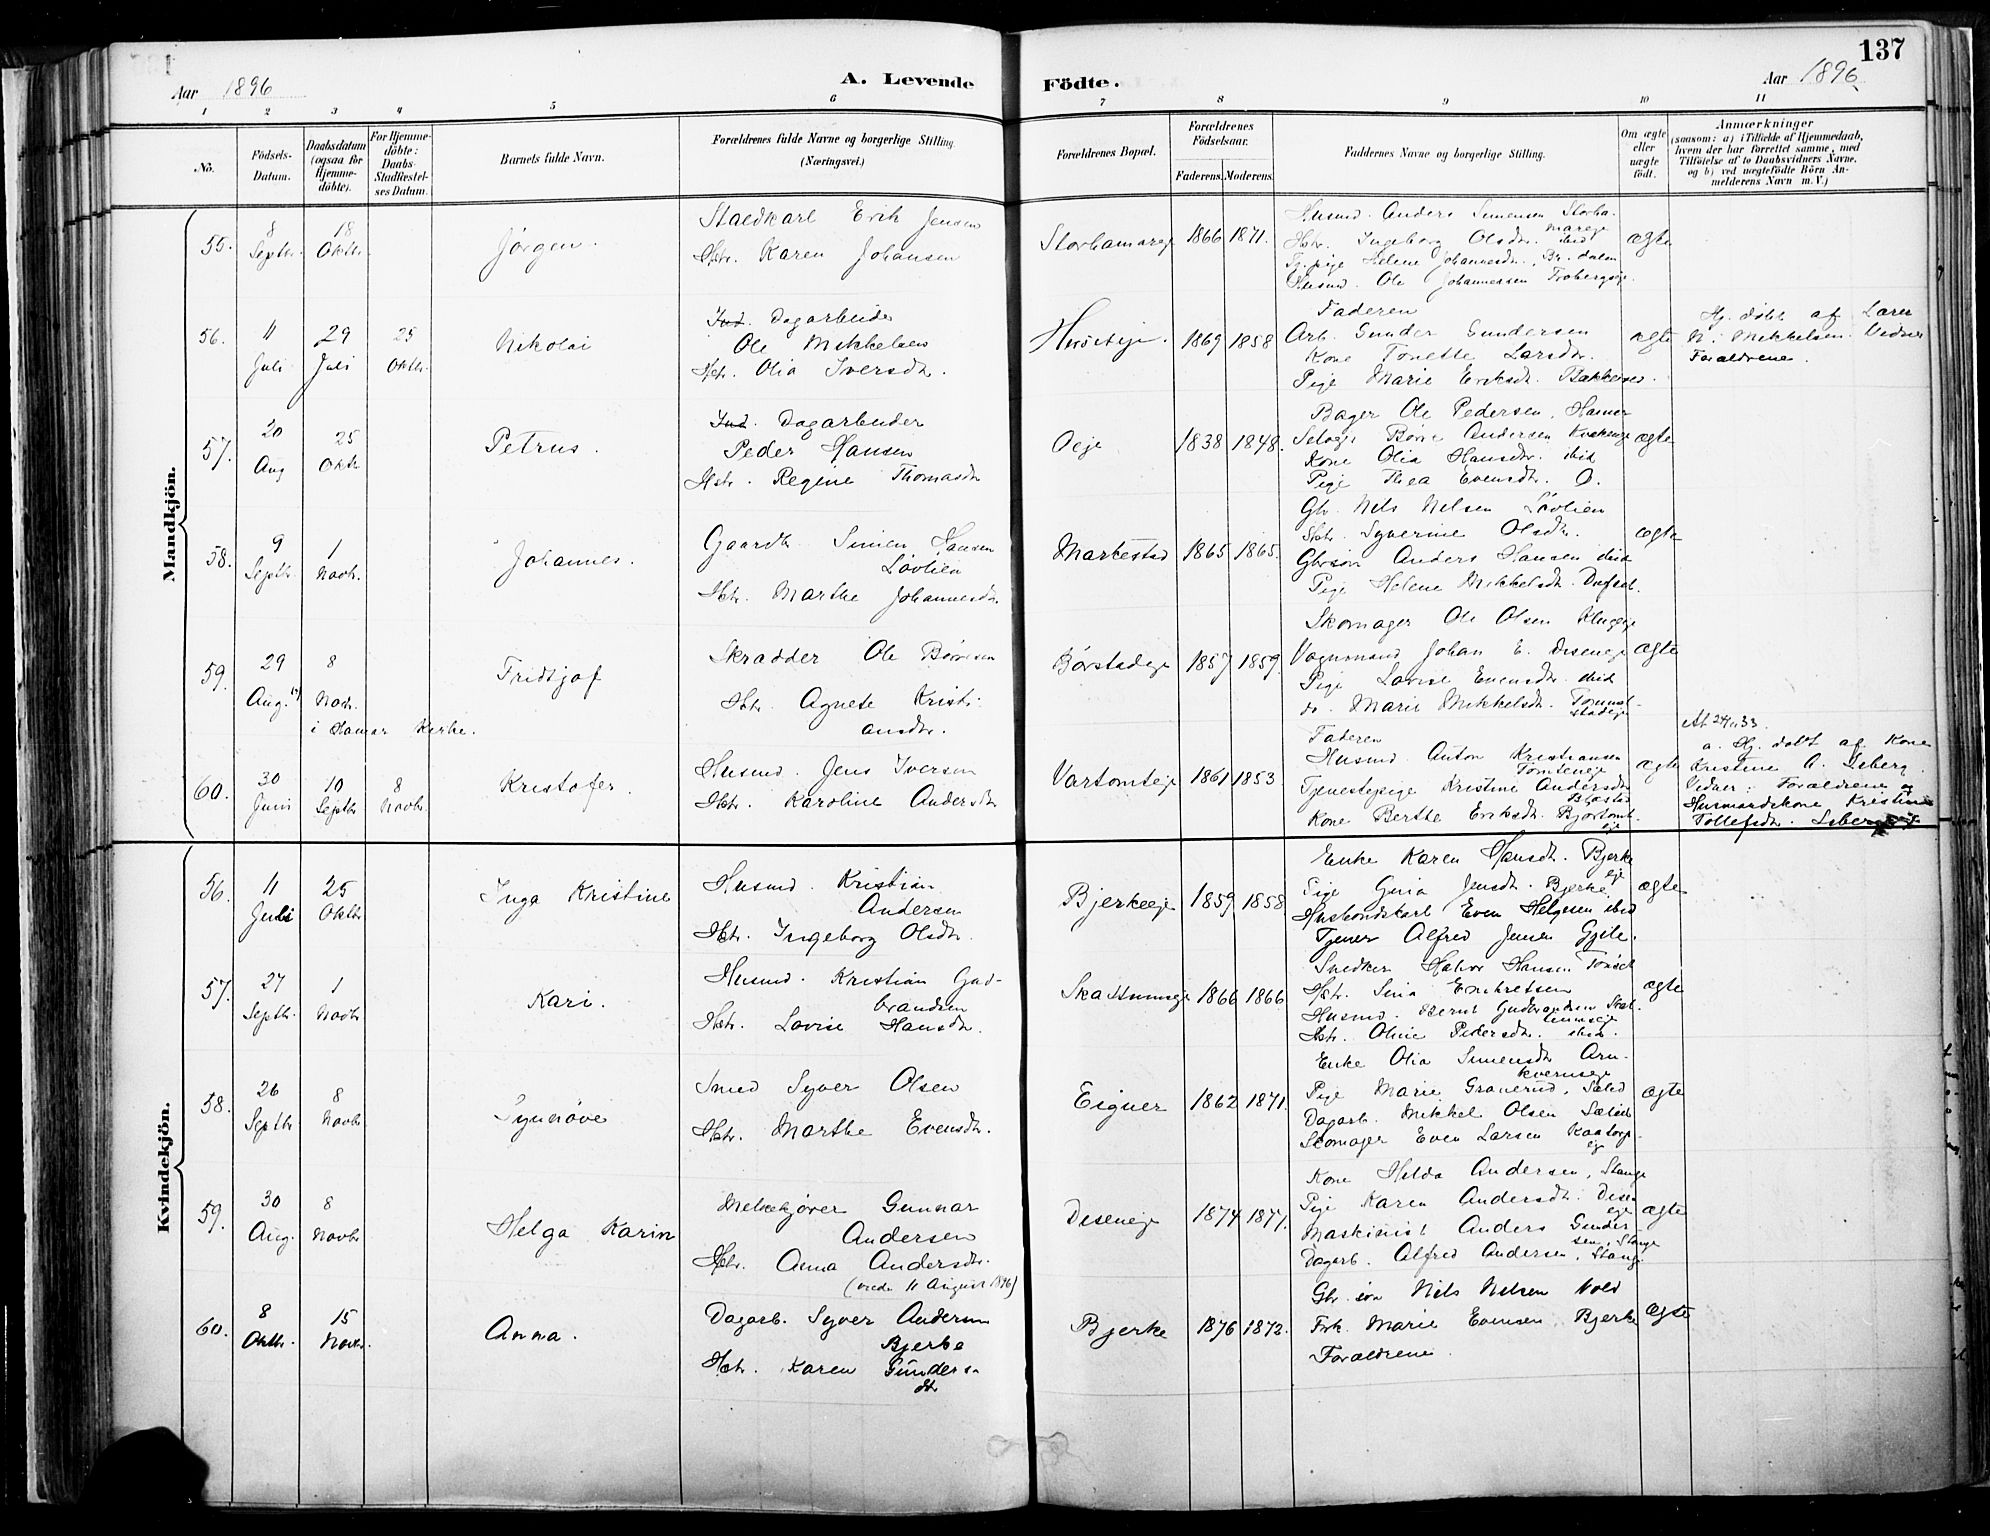 137
Aar 1896
A. Levende
Födte.
Aar 1896
1 2 3 4 5 6 7 8 9 10 11
No.
Födsels-
Datum.
Daabsdatum
(ogsaa for
Hjemme-
döbte).
For Hjemme-
döbte:
Daabs-
Stadfæstel-
ses Datum.
Barnets fulde Navn.
Forældrenes fulde Navne og borgerlige Stilling
(Næringsvei.)
Forældrenes Bopæl.
Forældrenes
Födselsaar.
Faderens. Moderens.
Faddernes Navne og borgerlige Stilling.
Om ægte
eller
uægte
födt.
Anmærkninger
(saasom: a) i Tilfælde af Hjemmedaab,
hvem der har forrettet samme, med
Tilföielse af to Daabsvidners Navne,
og b) ved uægtefödte Börn An-
melderens Navn m. V.)
Mandkjön.
55.
8
Septbr.
18
Oktbr.
Jörgen.
Staldkarl Erik Jensen
Hstr. Karen Johansen
Storhamareje
1866 1871.
Husmd. Anders Simensen Storha-
mareje
Hstr. Ingeborg Olsdtr. ibid
Tj.pige Helene Johannesdtr.
Husmd. Ole Johannessen
ægte
56.
11
Juli
29
Juli
25
Oktbr.
Nikolai
Ind. Dagarbeider
Ole Mikkelsen
Hstr. Olia Iversdtr.
1869 1858
Faderen
Arb. Gunder Gundersen
Kone Tonette Larsdtr.
Pige Marie Eriksdtr.
ægte
Hj. døbt af Lærer
N. Mikkelsen. Vidner
Forældrene.
57.
20
Aug
25
Oktbr
Petrus.
Ind. Dagarbeider
Peder Hansen
Hstr. Regine Thomasdtr
Oeje
1838 1848.
Bager Ole Pedersen, Hamar
Selvejer Börre Andersen
Kone Olia Hansdtr. ibid
Pige Thea Evensdtr. O.
ægte
58.
9
Septbr.
1
Novbr.
Johannes.
Gaardbr. Simen Hansen
Lövlien
Hstr. Marthe Johannesdtr.
Markestad
1865 1865.
Gbr. Nils Nilsen Lövlien
Hstr. Syverine Olsdtr.
Gbrsön Anders Hansen ibid
Pige Helene Mikkelsdtr.
ægte
59.
29
Aug.
8
Novbr.
i Hamar Kirke.
Fridtjof
Skrædder Ole Börresen
Hstr. Agnete Kristi-
ansdtr.
Börstadeje
1857 1859.
Skomager Ole Olsen
Vognmand Johan E. Diseneje
Pige Lovise Evensdtr. ibid
do. Marie Mikkelsdtr.
ægte
60.
30
Juni
10
Septbr
8
Novbr.
Kristofer.
Husmd. Jens Iversen
Hstr. Karoline Andersdtr
Vartomteje
1861 1853
Faderen
Husmd. Anton Kristiansen
Tomteneje
Tjenestepige Kristine Andersdtr
Kone Berthe Eriksdtr.
ægte
a. Hj. døbt af Kone
Kristine A. Liberg.
Vidner: Forældrene og
Husmandskone Kristine
Tollefsdtr.
Kvindekjön.
56.
11
Juli
25
Oktbr
Inga Kristine
Husmd. Kristian
Andersen
Hstr. Ingeborg Olsdtr.
Bjerkeeje
1859 1858.
Enke Karen Hansdtr. Bjerke
eje
Pige Gina Jensdtr. Bjerke.
Husbondskarl Even Helgesen ibid
Tjener Alfred Jensen
ægte
57.
27
Septbr.
1
Novbr
Kari.
Husmd. Kristian Gud-
brandsen
Hstr. Lovise Hansdtr.
1866 1866
Snedker Halvor Hansen
Hstr. Sina
Husmd. Bernt Gudbrandsen
Hstr. Oline Pedersdtr. ibid.
ægte
58.
26
Septbr
8
Novbr
Synnöve
Smed Syver Olsen
Hstr. Marthe Evensdtr.
Eigner
1862 1871.
Enke Olia Simensdtr Arn-
kverneje
Pige Marie Granerud,
Dagarb. Mikkel Olsen
Skomager Even Larsen Kaatorp-
ej
ægte
59.
30
Aug.
8
Novbr
Helga Karin
Melkekjörer Gunnar
Andersen
Hstr. Anna Andersdtr.
(viede 11 August 1896)
Diseneje
1874 1877.
Kone Hilda Andersen, Stange
Pige Karen Andersdtr. Disen
eje
Maskinist Anders Gunder-
sen, Stange
Dagarb. Alfred Andersen, Stang.
ægte
60.
8
Oktbr.
15
Novbr.
Anna.
Dagarb. Syver Andersen
Bjerke
Hstr. Karen Gunders-
dtr
Bjerke
1876 1872.
Gbr.sön Nils Nilsen Vold
Frk. Marie Evensen, Bjerke
Forældrene.
ægte